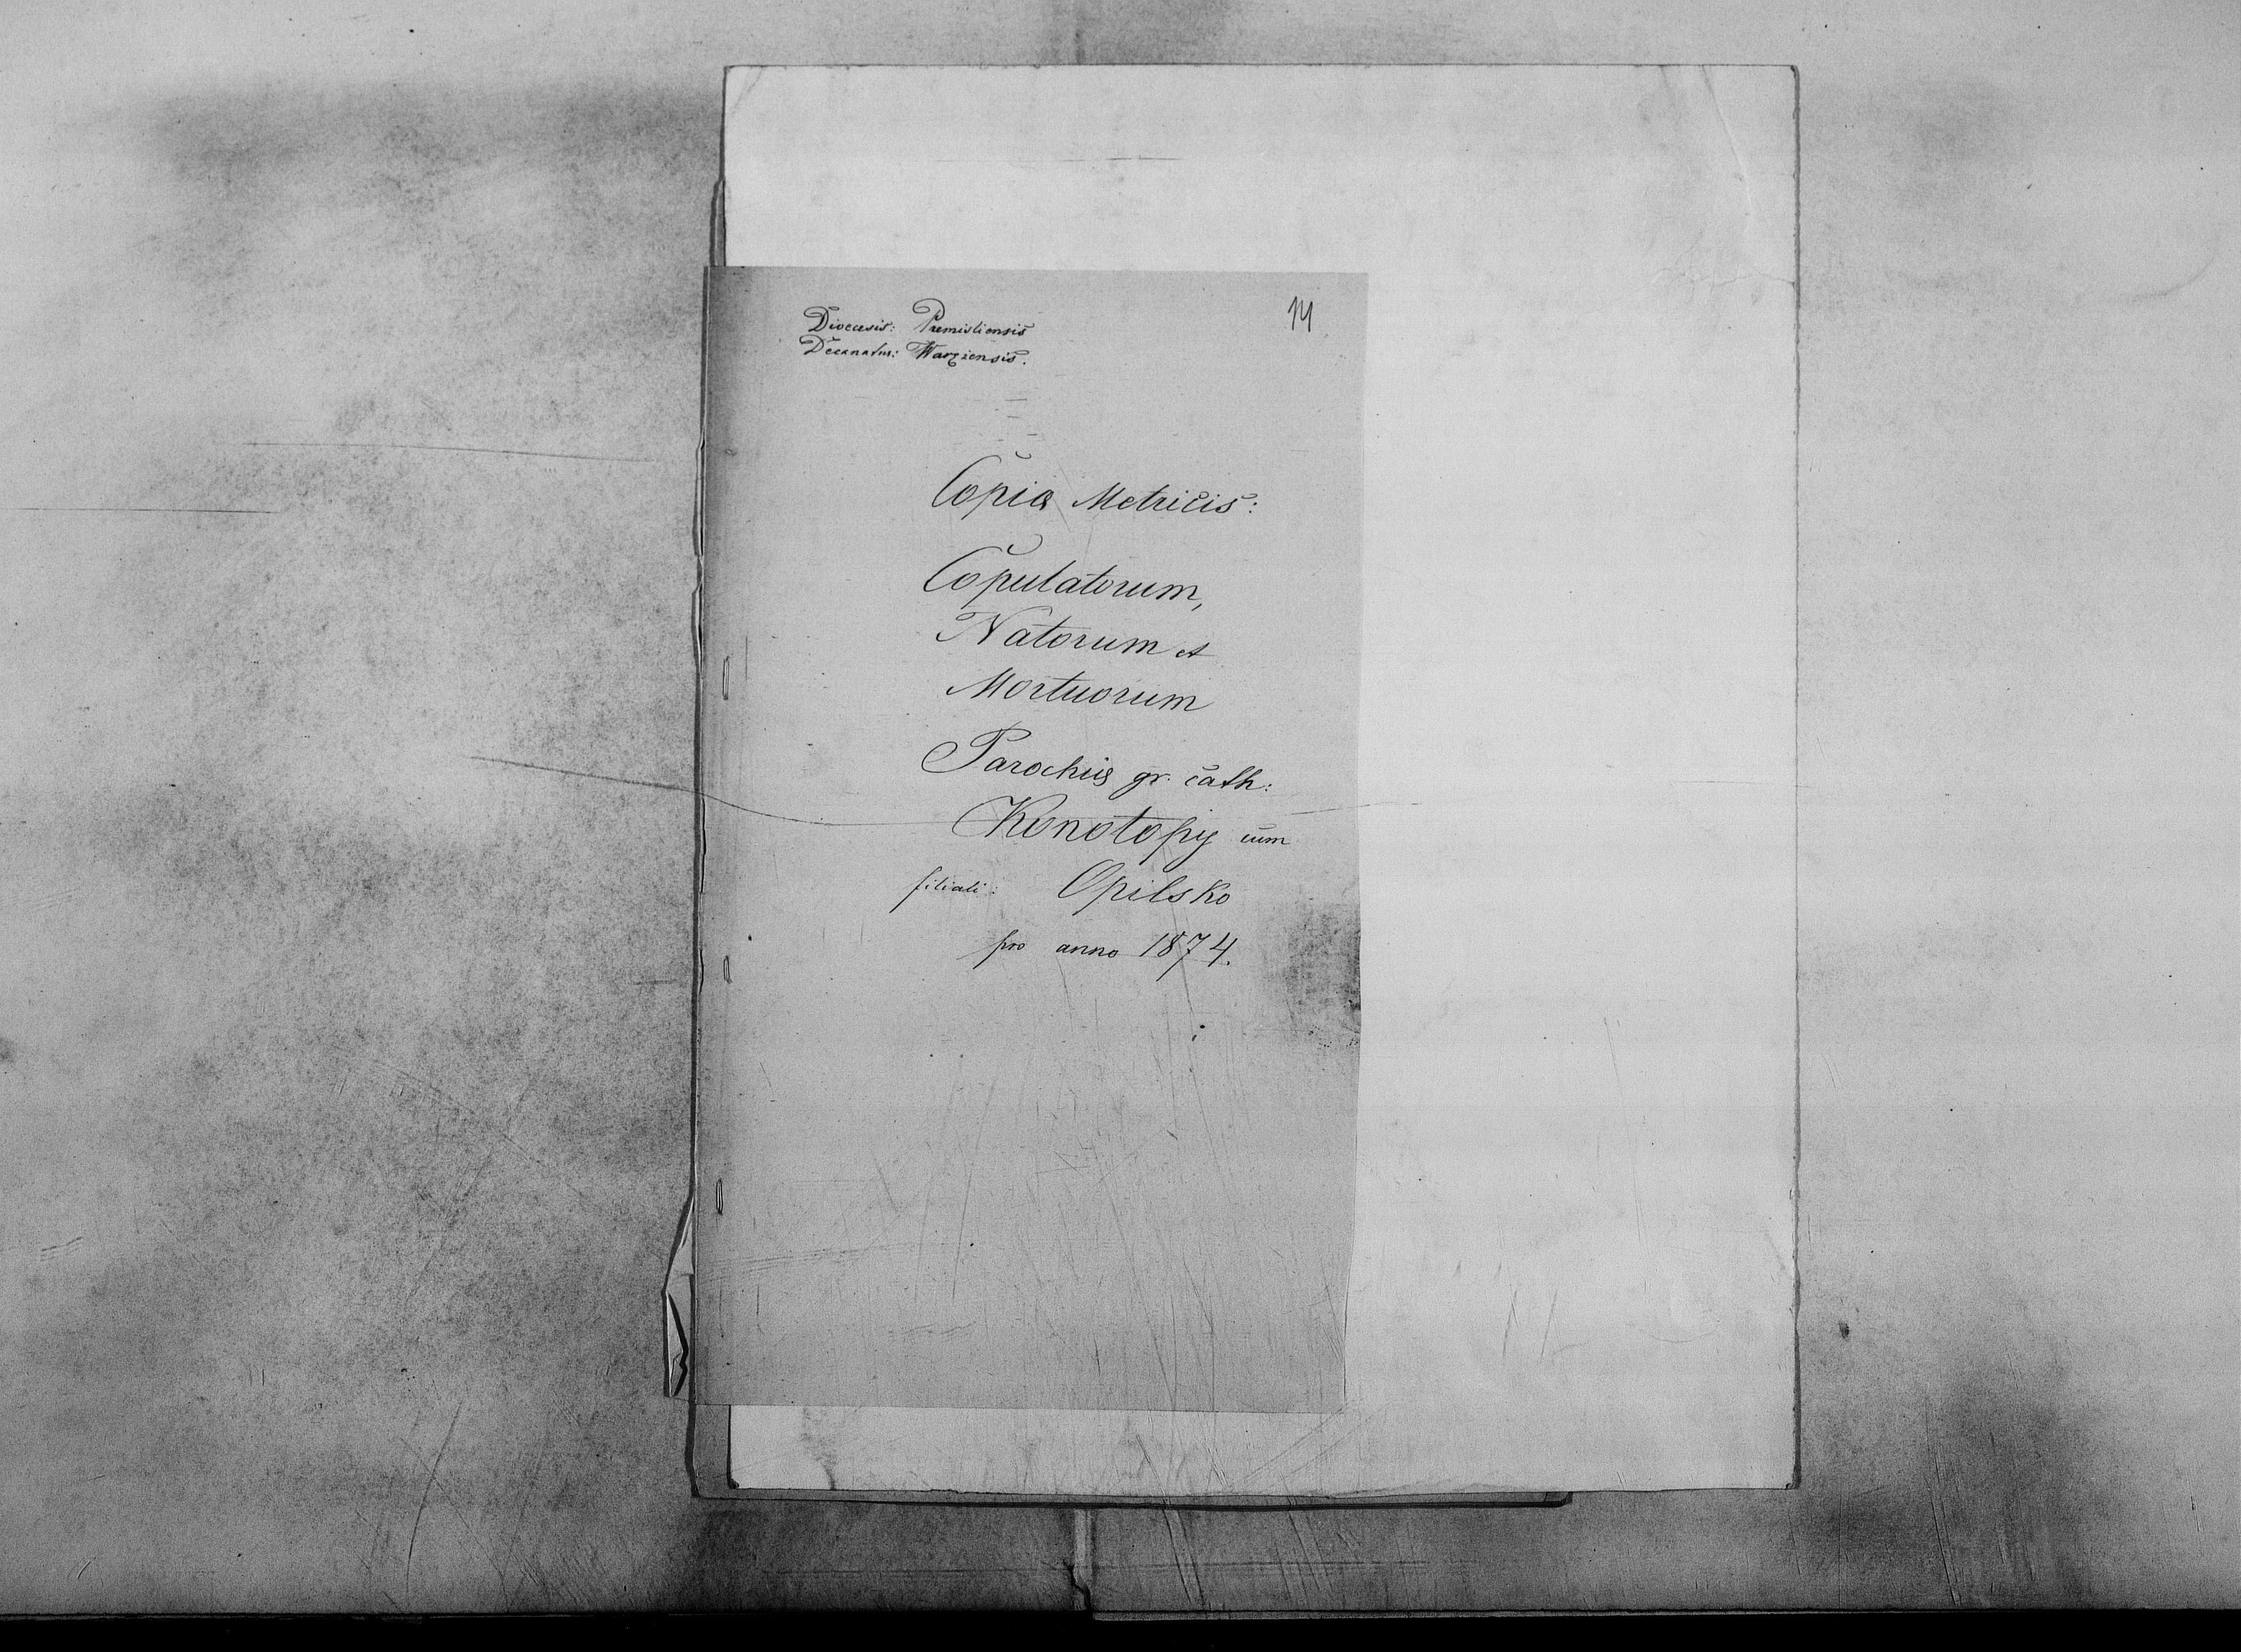 14
Dioecesis: Premisliensis
Decanatus: Warężensis.
Copia Metricis:
Copulatorum,
Natorum et
Mortuorum
Parochiæ gr. cath:
Konotopy cum
filiali: Opilsko
pro anno 1874.